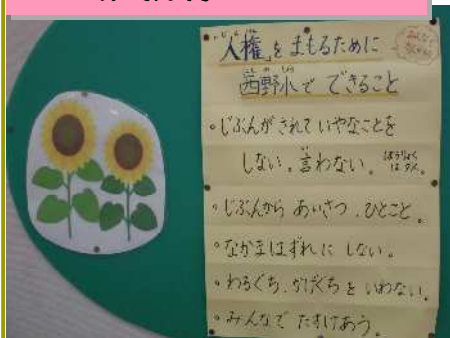 「人権」をまもるために
西野小で できること
・じぶんがされていやなことを
しない。言わない。 ぼうりょくはダメ。
・じぶんから あいさつ、ひとこと。
・なかまはずれに しない。
・わるぐち、かげぐちを いわない。
・みんなで たすけあう。